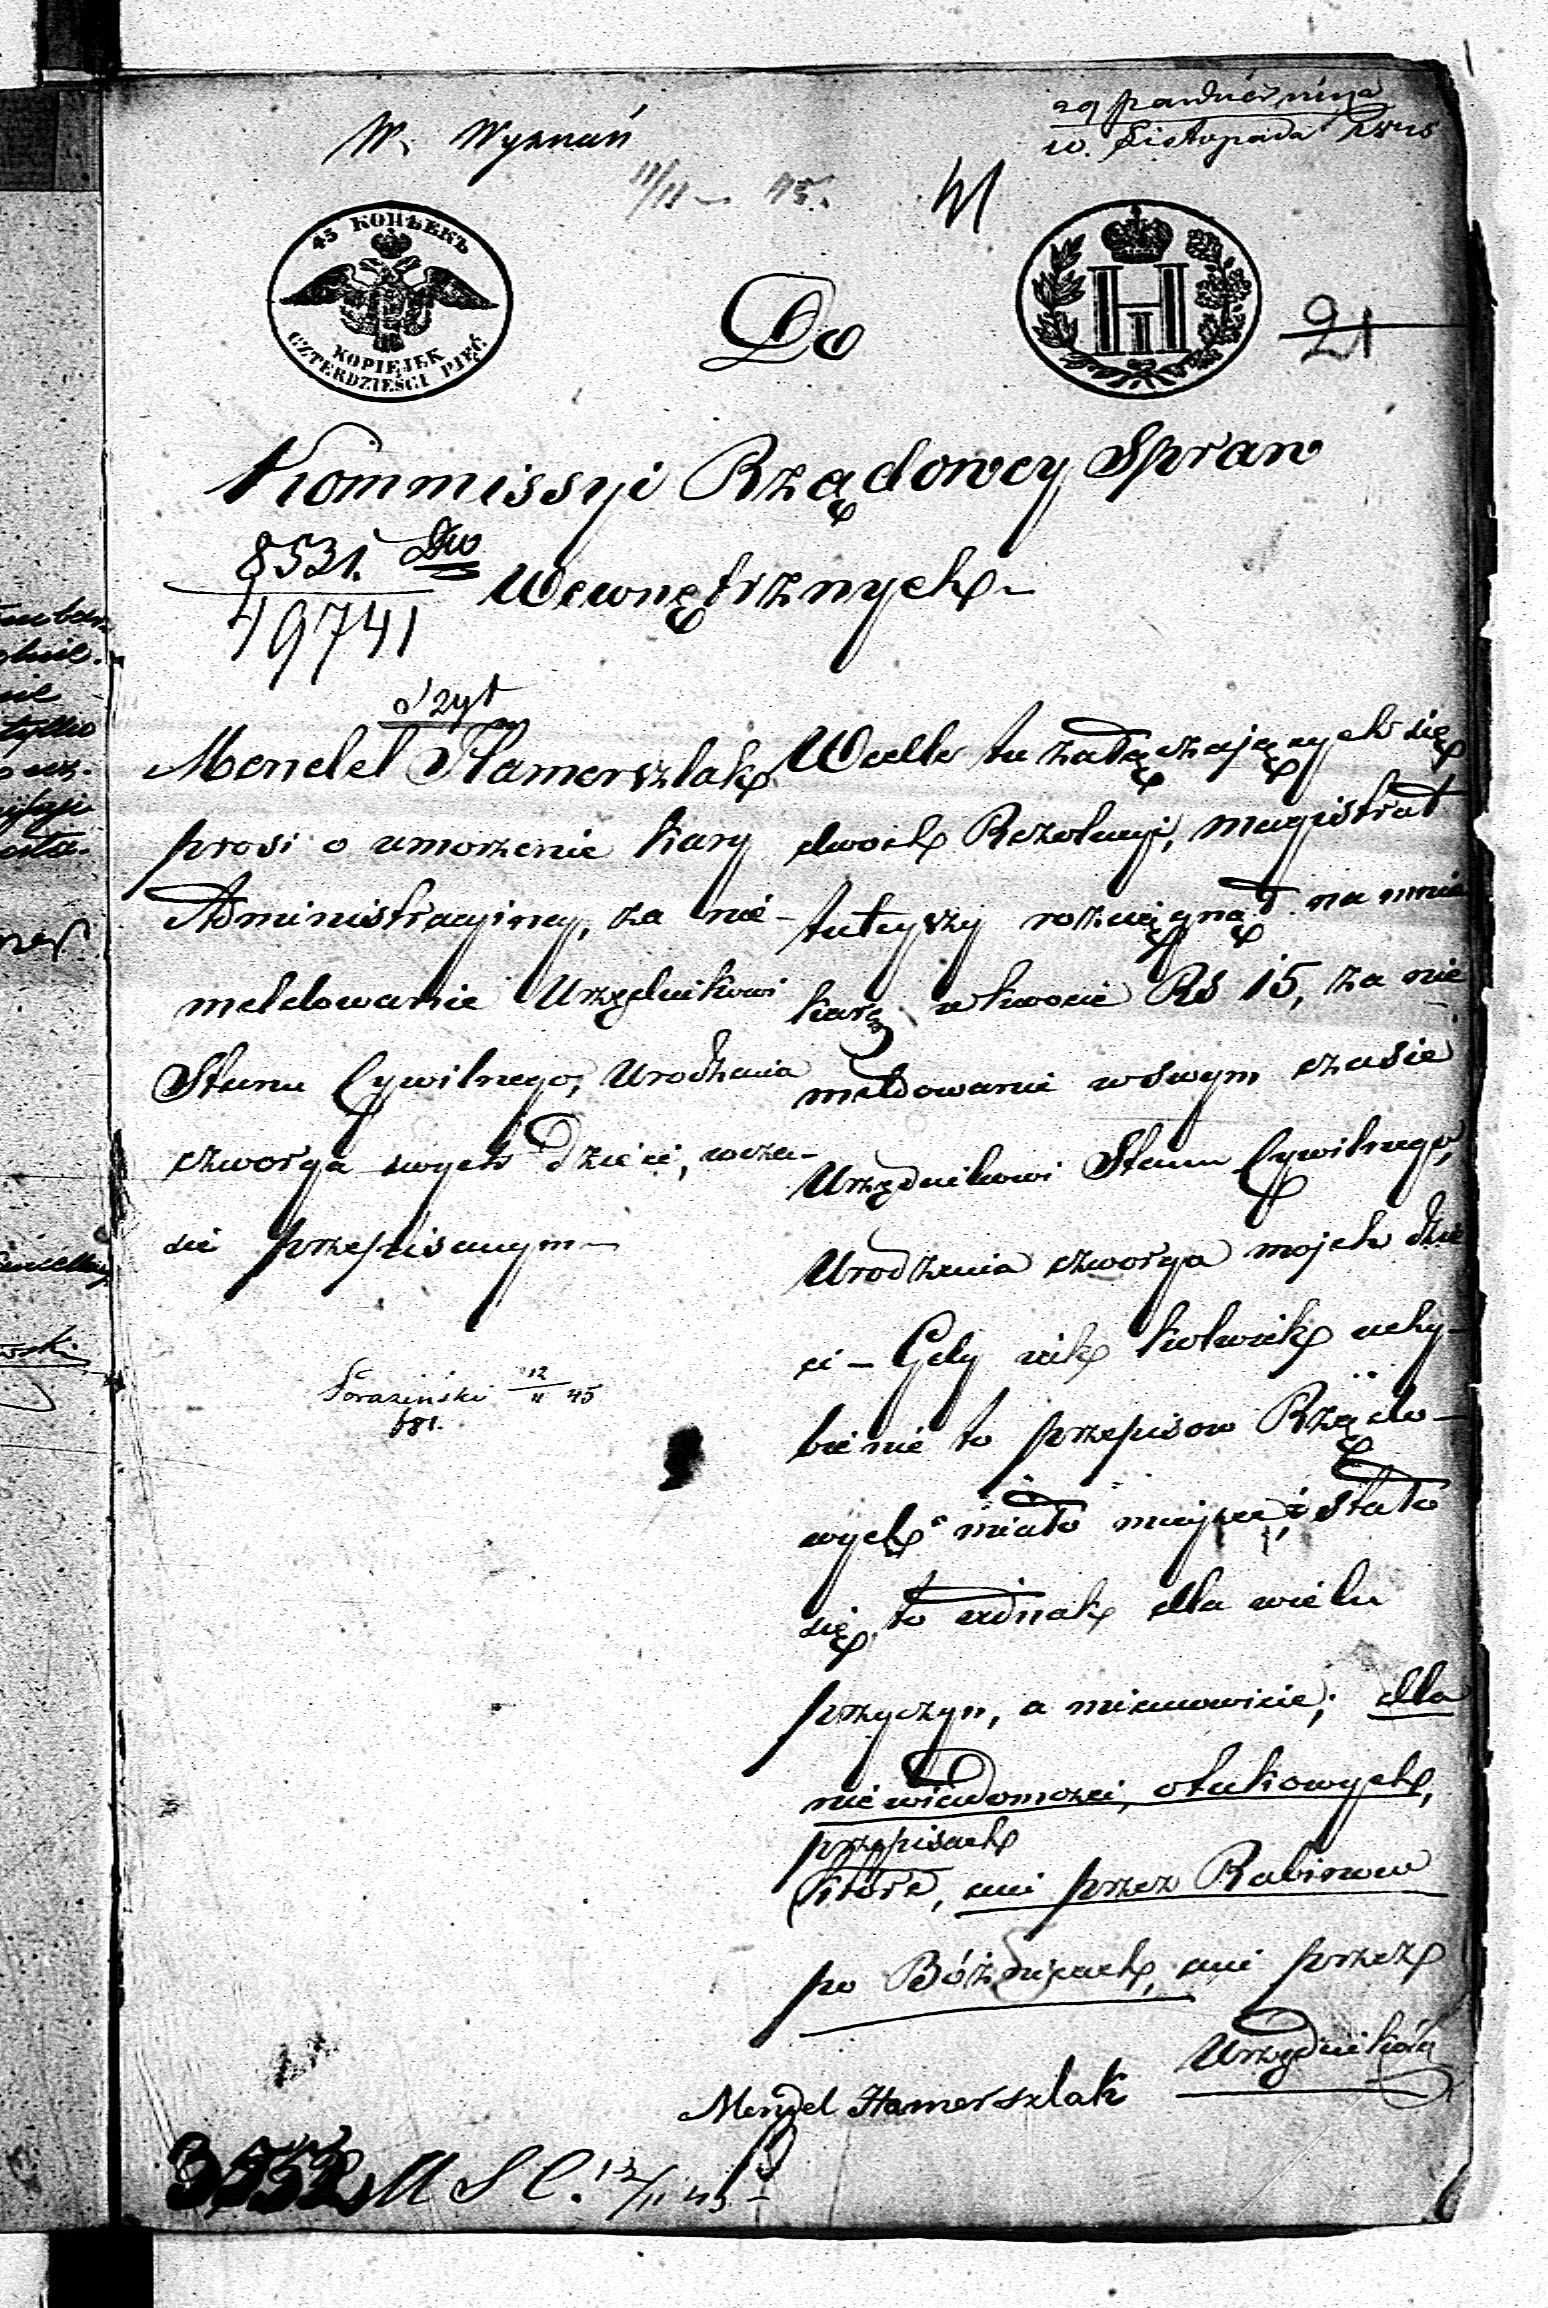 W. Wyznań
29 października
10. Listopada 1845
11/11 – 45.
41
45 КОПѢЕКЪ
KOPIEJEK
CZTERDZIEŚCI PIĘĆ
Do
H
21
Kommissyi Rządowey Spraw
8531. Dw
49741
Wewnętrznych
odzyt
Mendel Hamerszlak
prosi o umorzenie kary
Administracyiney, za nie-
meldowanie Urzędnikowi
Stanu Cywilnego, Urodzenia
czworga swych Dzieci, wcza-
sie przepisanym
12/11 45
681.
Wedle tu załączających się
dwoch Rezolucyi, magistrat
tuteyszy rozciągnął na mnie
karę w kwocie Rs 15, za nie
meldowanie w swym czasie
Urzędnikowi Stanu Cywilnego,
Urodzenia czworga moich dzie
ci – Gdy iak kolwiek uchy-
bienie to przepisow Rządo-
wych miało mieysce, i stało
się to iednak dla wielu
przyczyn, a mianowicie; dla
niewiadomości, o takowych,
przepisach
które, ani przez Rabinow
po Bóżnicach, ani przez
Urzędników
Mendel Hamerszlak
M S C. 12/11 45